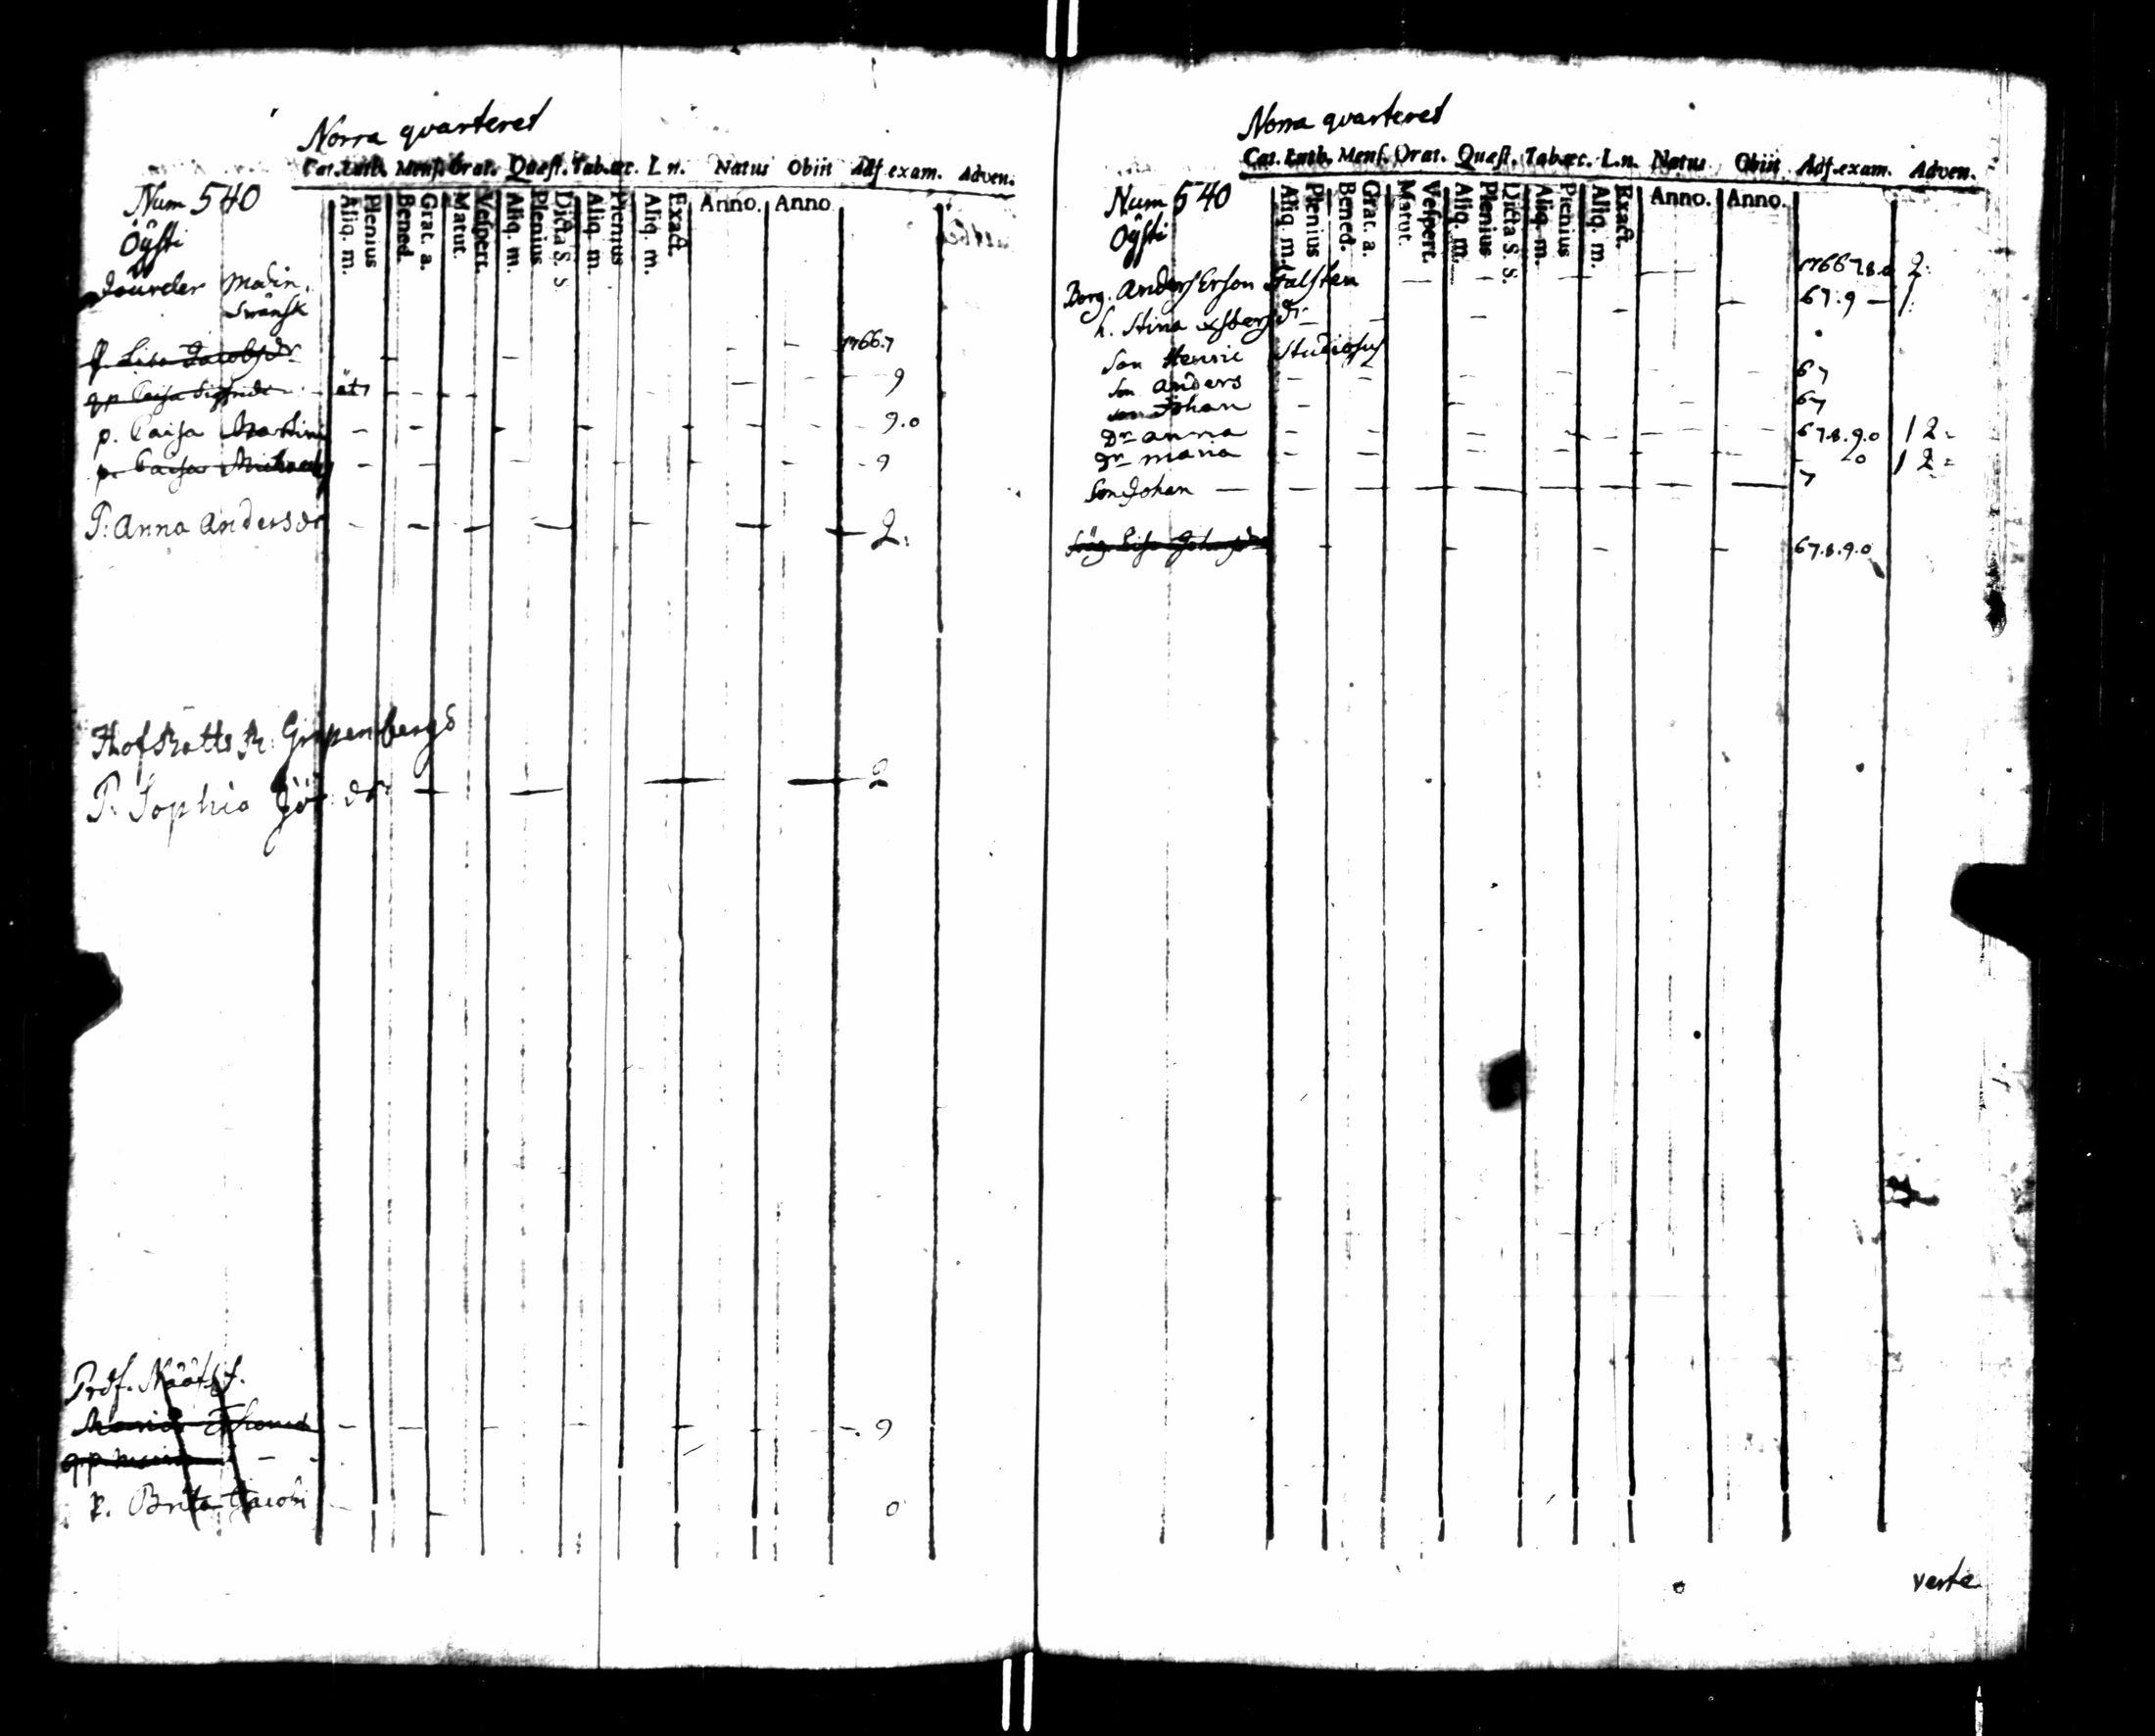 Norra qvarteret
Cat. Luth. Mens. Orat. Quæst. Tab. œc. L. n. Natus Obiit Adf. exam. Adven.
Num 540
Aliq. m. Plenius Bened. Grat. a. Matut. Vespert. Aliq. m. Plenius Dicta S. S. Aliq. m. Plenius Aliq. m. Exact. Anno. Anno
Öÿsti
Malin
Swänsk
Lisa Jacobsdr 1766.7
qp Caisa Sigfrids 9
p. Caisa Martini 9.0
p. Caisa Michaels 9
P. Anna Andersdr 2.
HofRätts R. Gripenbergs
P. Sophia dr 2
Prof.
Maria Thomd 9
qp Maria
P. Brita Jacobi 0
Norra qvarteret
Cat. Luth. Mens. Orat. Quæst. Tab. œc. L. n. Natus Obiit Adf. exam. Adven.
Num 540
Aliq. m. Plenius Bened. Grat. a. Matut. Vespert. Aliq. m. Plenius Dicta S. S. Aliq. m. Plenius Aliq. m. Exact. Anno. Anno.
Öÿsti
Borg. Anders Erson Falsten 1766 7.8.0 2.
h. Stina dr 67.9 — 1.
Son Henric Studiosus
Son Anders 67
Son Johan 67
Dr Anna 67.8.9.0 12.
Dr Maria 0 12.
Son Johan 7
Lisa 67.8.9.0
verte